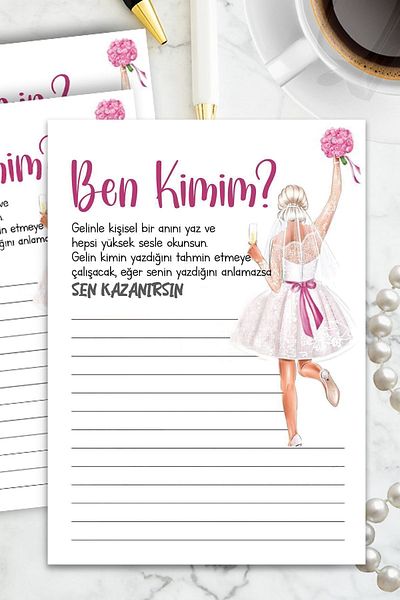 Ben Kimim?
Gelinle kişisel bir anını yaz ve
hepsi yüksek sesle okunsun.
Gelin kimin yazdığını tahmin etmeye
çalışacak, eğer senin yazdığını anlamazsa
SEN KAZANIRSIN